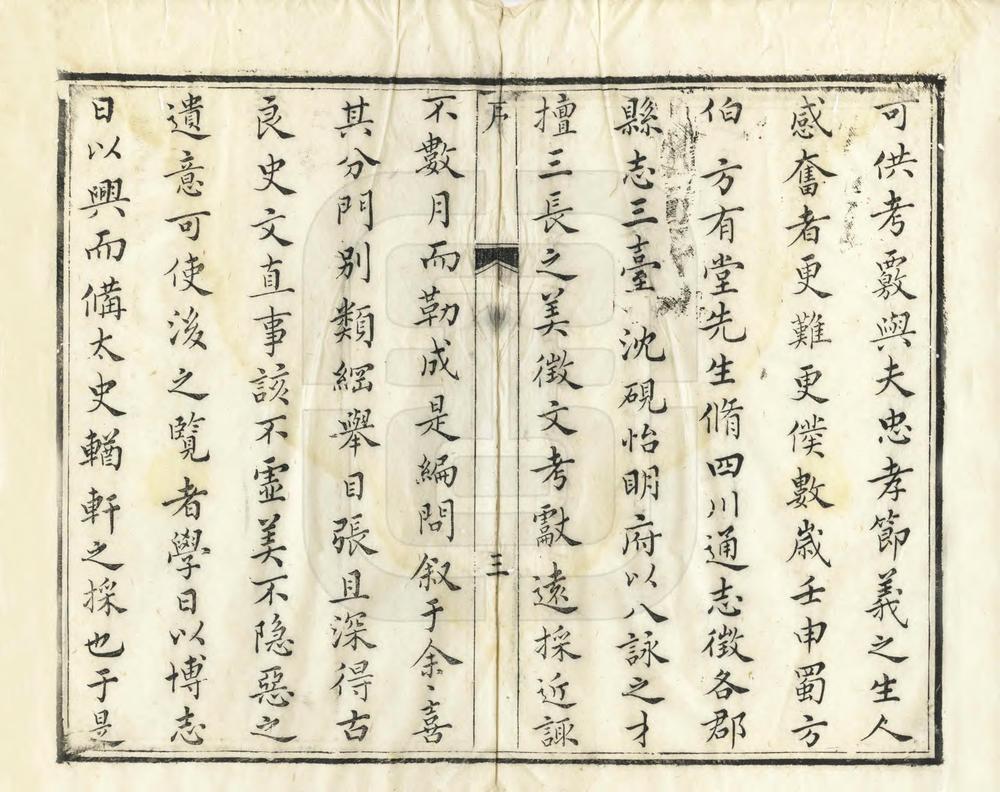 可供考覈與夫忠孝節義之生人
感奮者更難更僕數歲壬申蜀方
伯 方有堂先生脩四川通志徵各郡
縣志三臺 沈硯怡明府以八詠之才
擅三長之美徵文考獻遠採近諏
序 三
不數月而勒成是編問叙于余〻喜
其分門別類綱舉目張且深得古
良史文直事該不虛美不隐惡之
遺意可使後之覽者學日以博志
日以興而備太史輶軒之採也于是